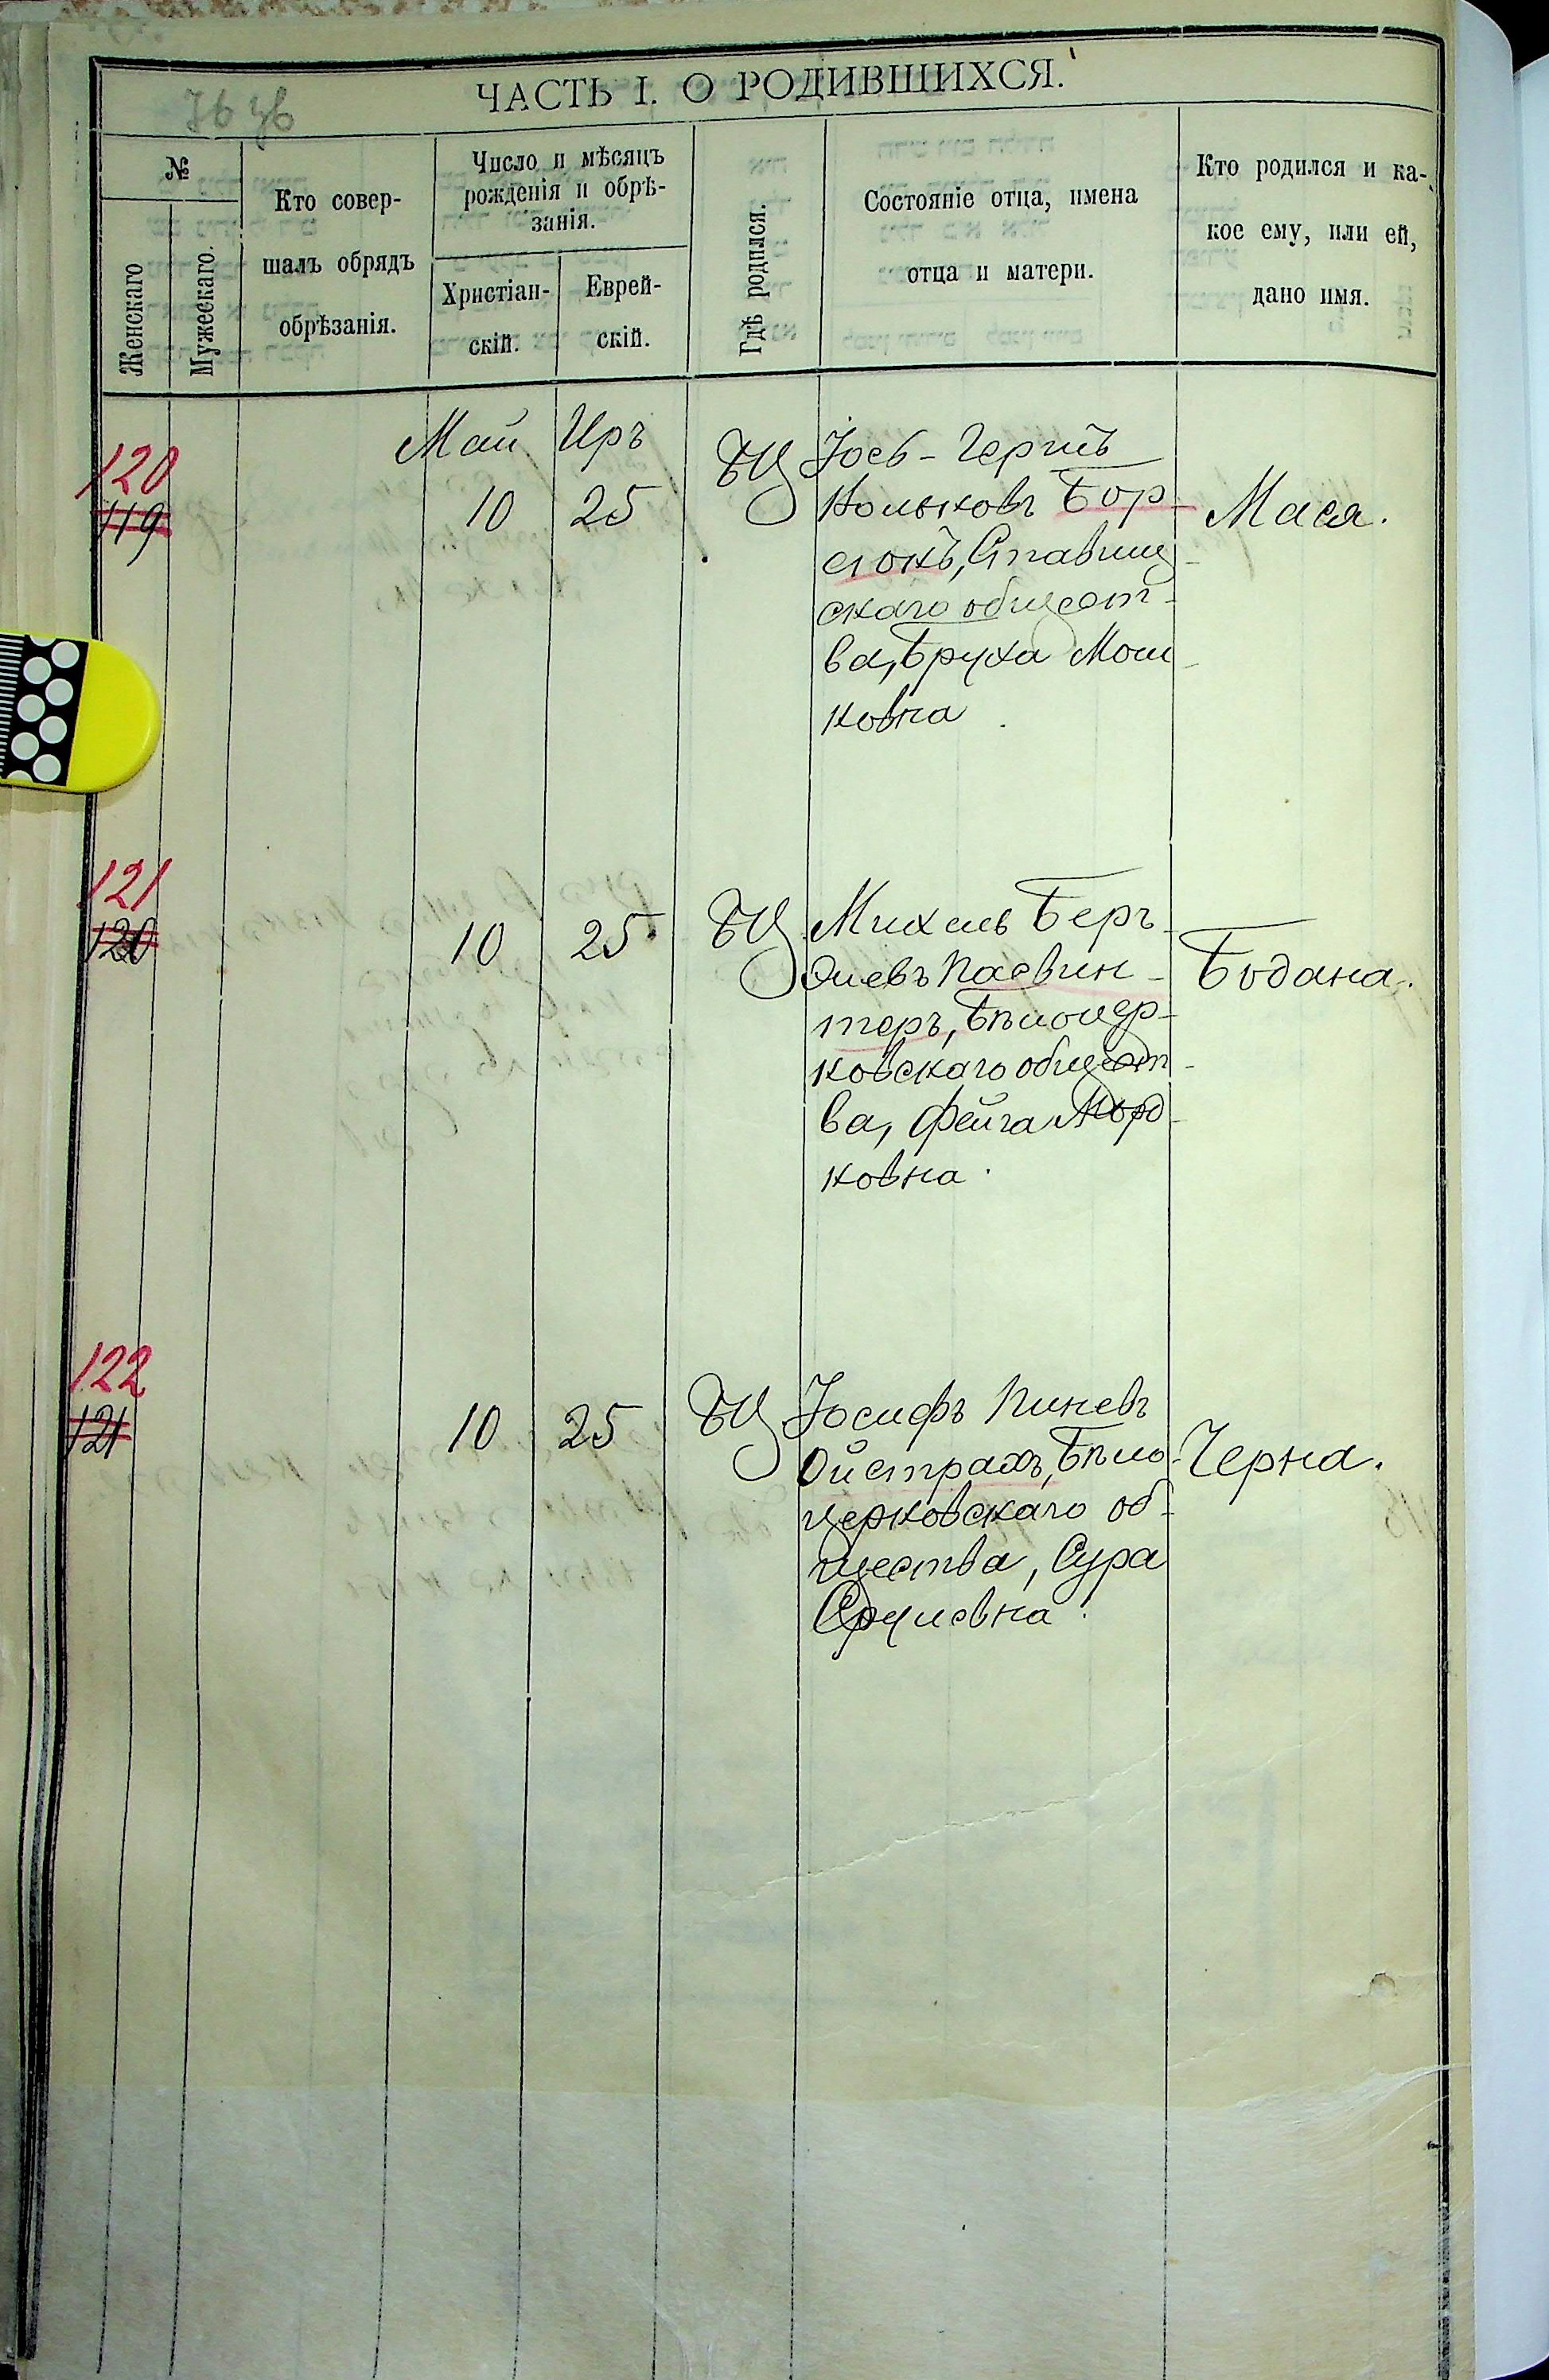 ЧАСТЬ I. О РОДИВШИХСЯ.
№
Женскаго
Мужескаго.
Кто совер-
шалъ обрядъ
обрѣзанія.
Число и мѣсяцъ
рожденія и обрѣ-
занія.
Христіан-
скій.
Еврей-
скій.
Гдѣ родился.
Состояніе отца, имена
отца и матери.
Кто родился и ка-
кое ему, или ей,
дано имя.
Май Иръ
120
119
10 25
БЦ
Іось-Гершъ
Іольковъ Бор
слокъ, Ставищ
скаго общест-
ва, Бруха Мош
ковна
Мася.
121
120
10 25
БЦ
Михель Беръ-
Олевъ
теръ, Бѣлоцер-
ковскаго общест
ва, Фейга Морд
ковна.
Бодана.
122
121
10 25
БЦ
Іосифъ Пиневъ
Ойстрахъ, Бѣло
церковскаго об-
щества, Сура
Срулевна.
Черна.